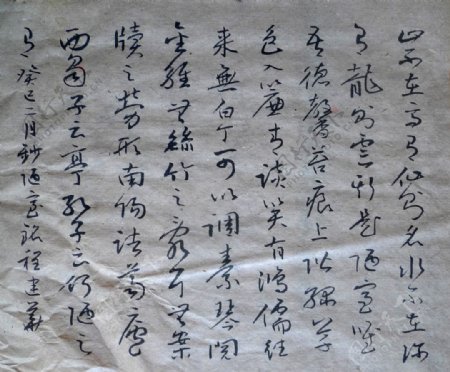 山不在高有仙則名水不在深
有龍則靈斯是陋室惟
吾德馨苔痕上階綠草
色入簾青談笑有鴻儒往
來無白丁可以調素琴閱
金經無絲竹之亂耳無案
牘之勞形南陽諸葛廬
西蜀子云亭孔子云何陋之
有 癸巳一月鈔陋室銘程建華